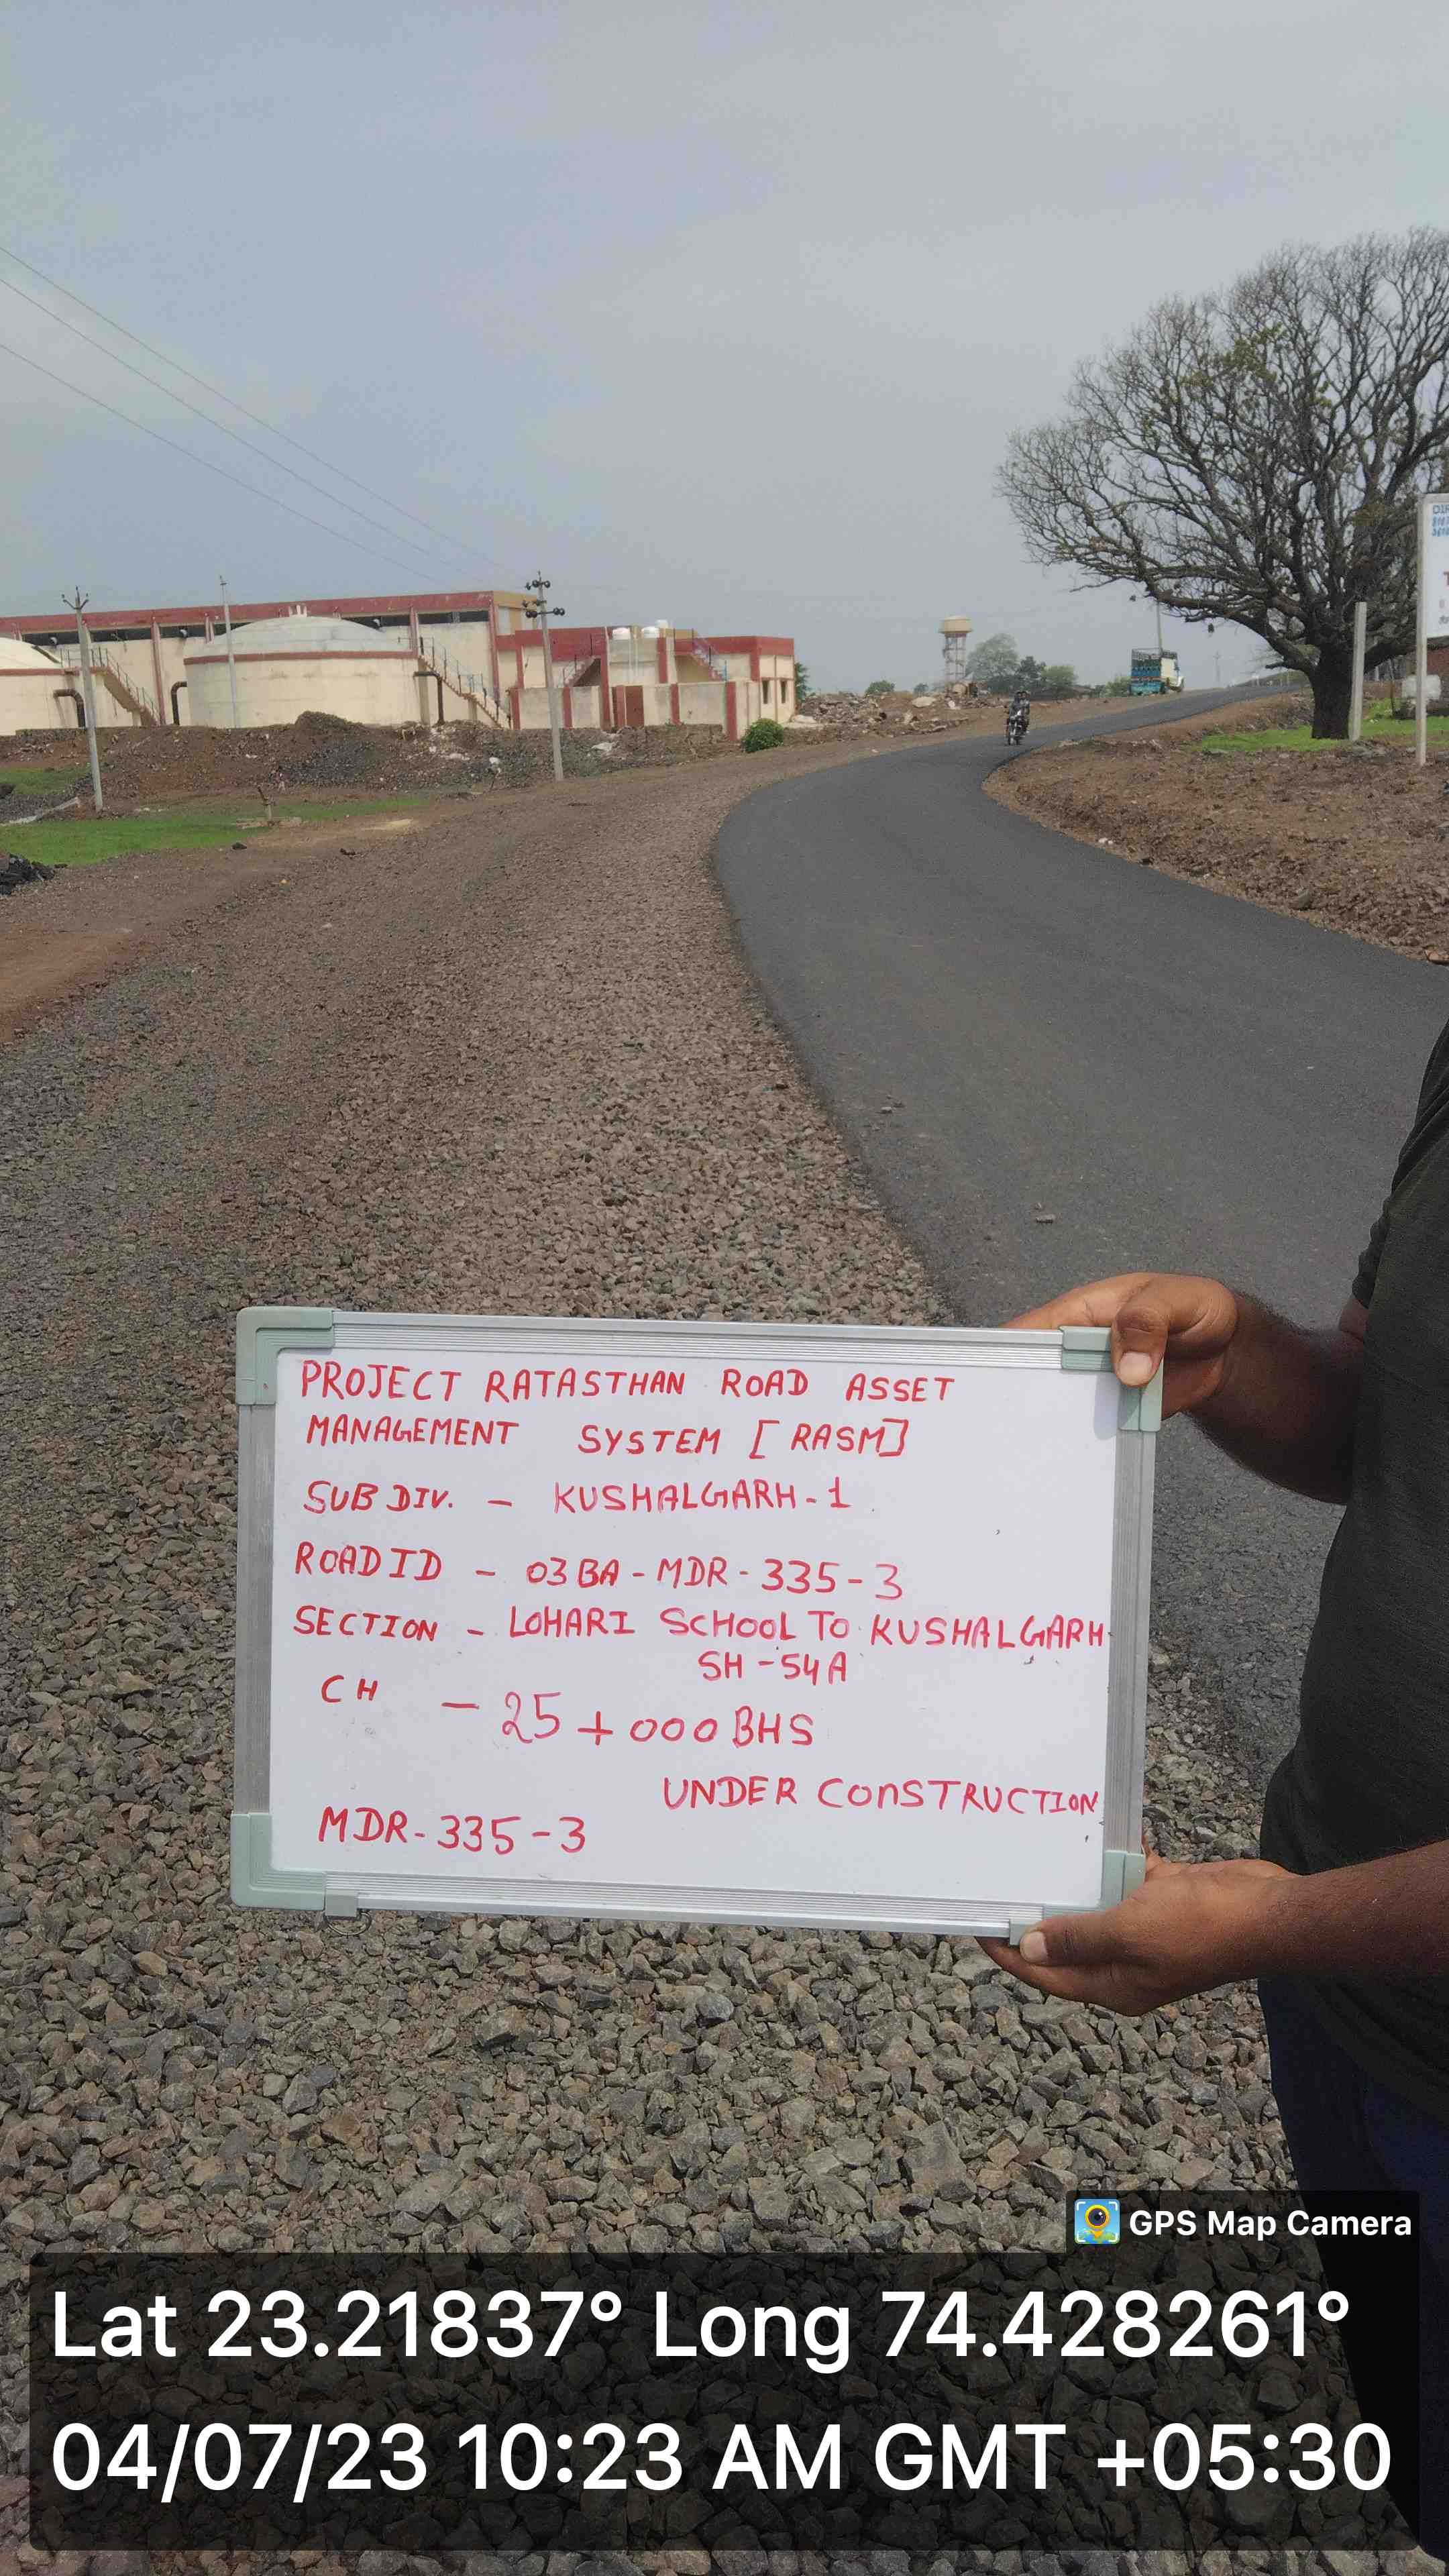 PROJECT RATASTHAN ROAD ASSET
MANAGEMENT SYSTEM [RASM]
SUB DIV. - KUSHALGARH-1
ROAD ID - 03BA-MDR-335-3
SECTION - LOHARI SCHOOL TO KUSHALGARH
SH-54A
CH - 25+000 BHS
UNDER CONSTRUCTION
MDR-335-3
GPS Map Camera
Lat 23.21837° Long 74.428261°
04/07/23 10:23 AM GMT +05:30